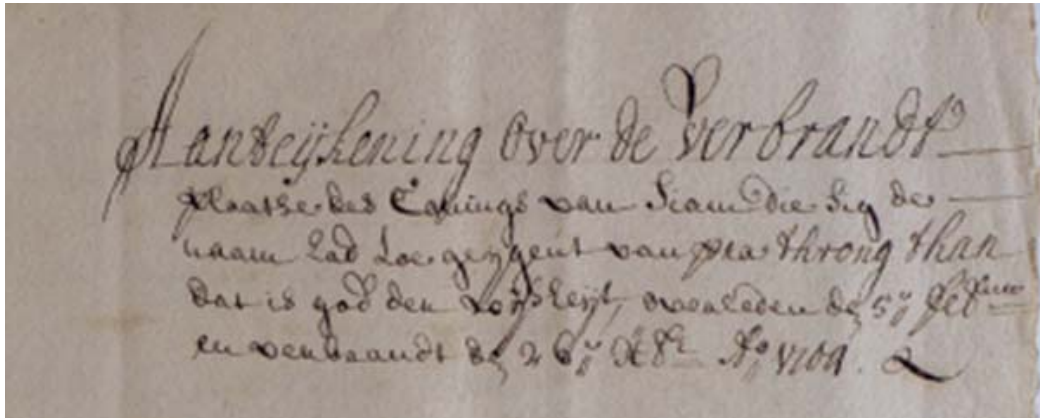 Aanteijkening over de Verbrandt
plaatse des Conings van Siam die sig de
naam had toe geeijgent van pra throng than
dat is god der wijsheijt, overleden de 5:
en verbrandt de 26: Xbr Ao 1704.